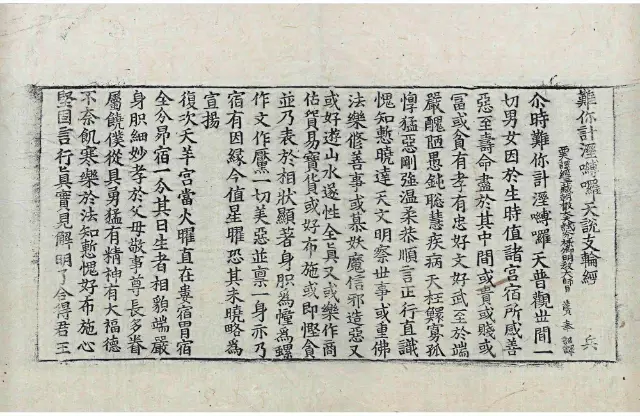 難你計溼嚩囉天說支輪經 兵
西天譯經三藏朝散大夫試鴻臚卿明教大師臣法賢奉詔譯
尒時難你計溼嚩囉天普觀世間一
切男女因於生時值諸宮宿所感善
惡至壽命盡於其中間或貴或賤或
冨或貧有孝有忠好文好武至於端
嚴醜陋愚鈍聡慧疾病夭枉鰥寡孤
惸猛惡剛強温柔恭順言正行直識
愧知慙曉達天文明察世事或重佛
法樂修善事或慕妖魔信邪造惡又
或好遊山水逸性全真又或樂作商
估貿易寳貨或好布施或即慳貪
並乃表於相狀顯著身胑為幢為螺
作文作黶一切美惡並禀一身亦乃
宿有因緣今值星曜恐其未曉略為
宣揚
復次天羊宮當火曜直在婁宿胃宿
全分昴宿一分其日生者相貌端嚴
身胑細妙孝於父母敬事尊長多眷
屬饒僕從具勇猛有精神有大福德
不奈飢寒樂於法知慙愧好布施心
堅固言行真實見解明了合得君王